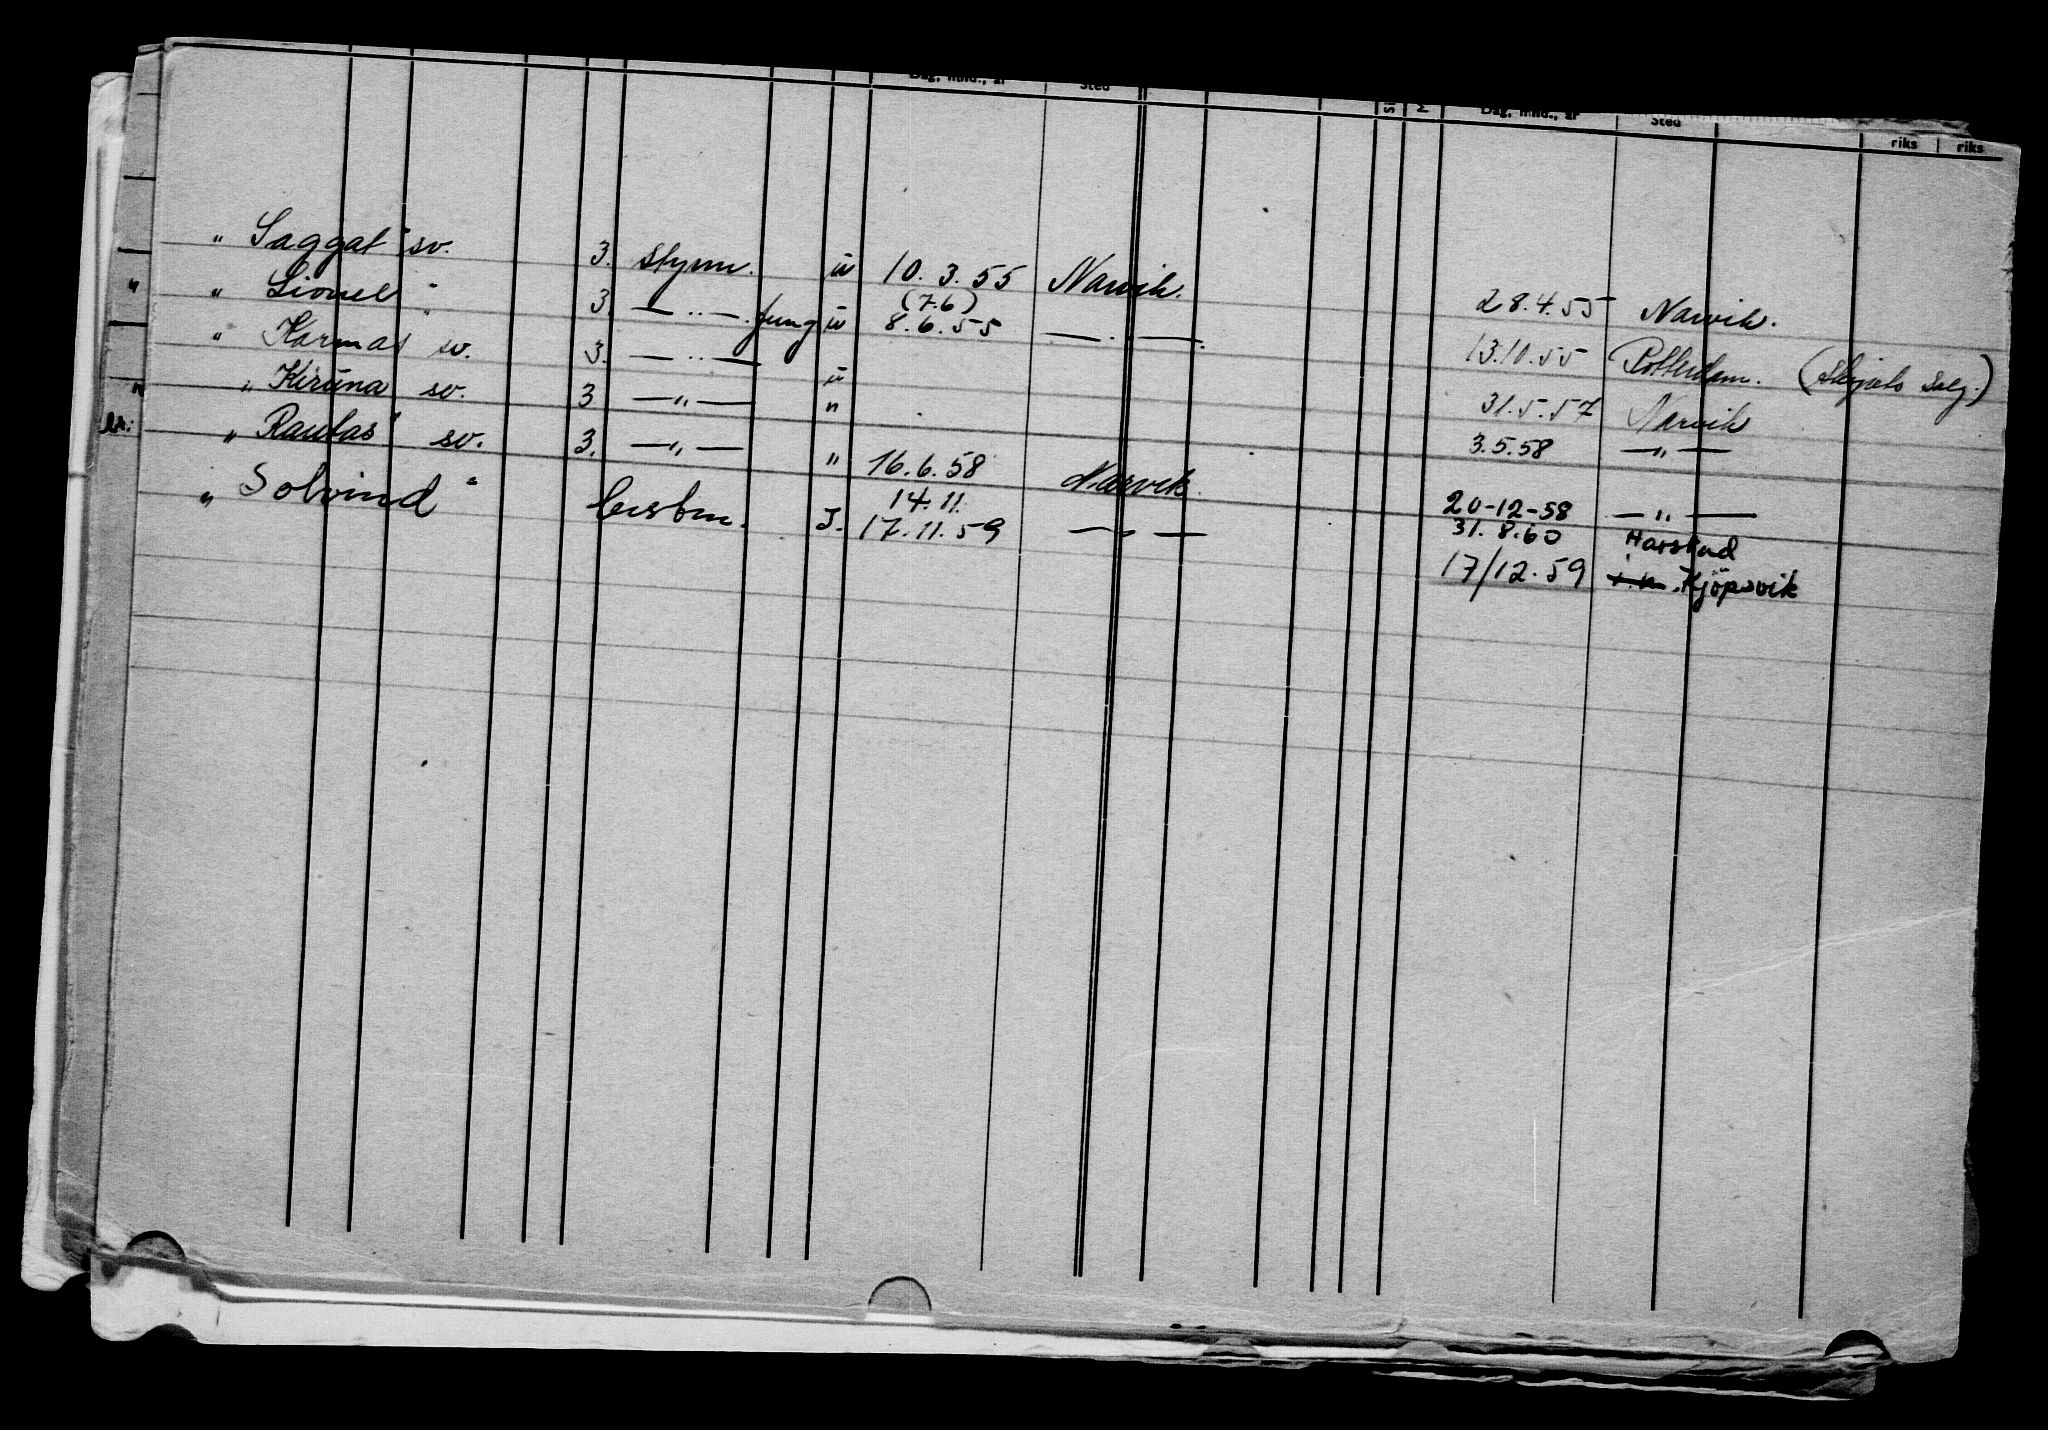 Dag, mnd., år Sted Dag, mnd., år Sted riks riks
„ Saggat" sv. 3. styrm. u 10. 3. 55 Narvik. 28.4.55 Narvik.
„ Lionel " „ 3. — „ — fung u (7.6) 8.6.55 — „ —. 13.10.55 Rotterdam. (Skipets salg.)
„ Karmas sv. 3. — „ — u 31.5.57 Narvik
„ Kiruna sv. 3 — „ — " 3.5.58 — „ —
„ Rautas" sv. 3. — „ — " 16.6.58 Narvik. 20-12-58 — „ —
„ Solvind " J. 14.11. 17.11.59 — „ — 31.8.60 Harstad
17/12.59 Kjöpsvik